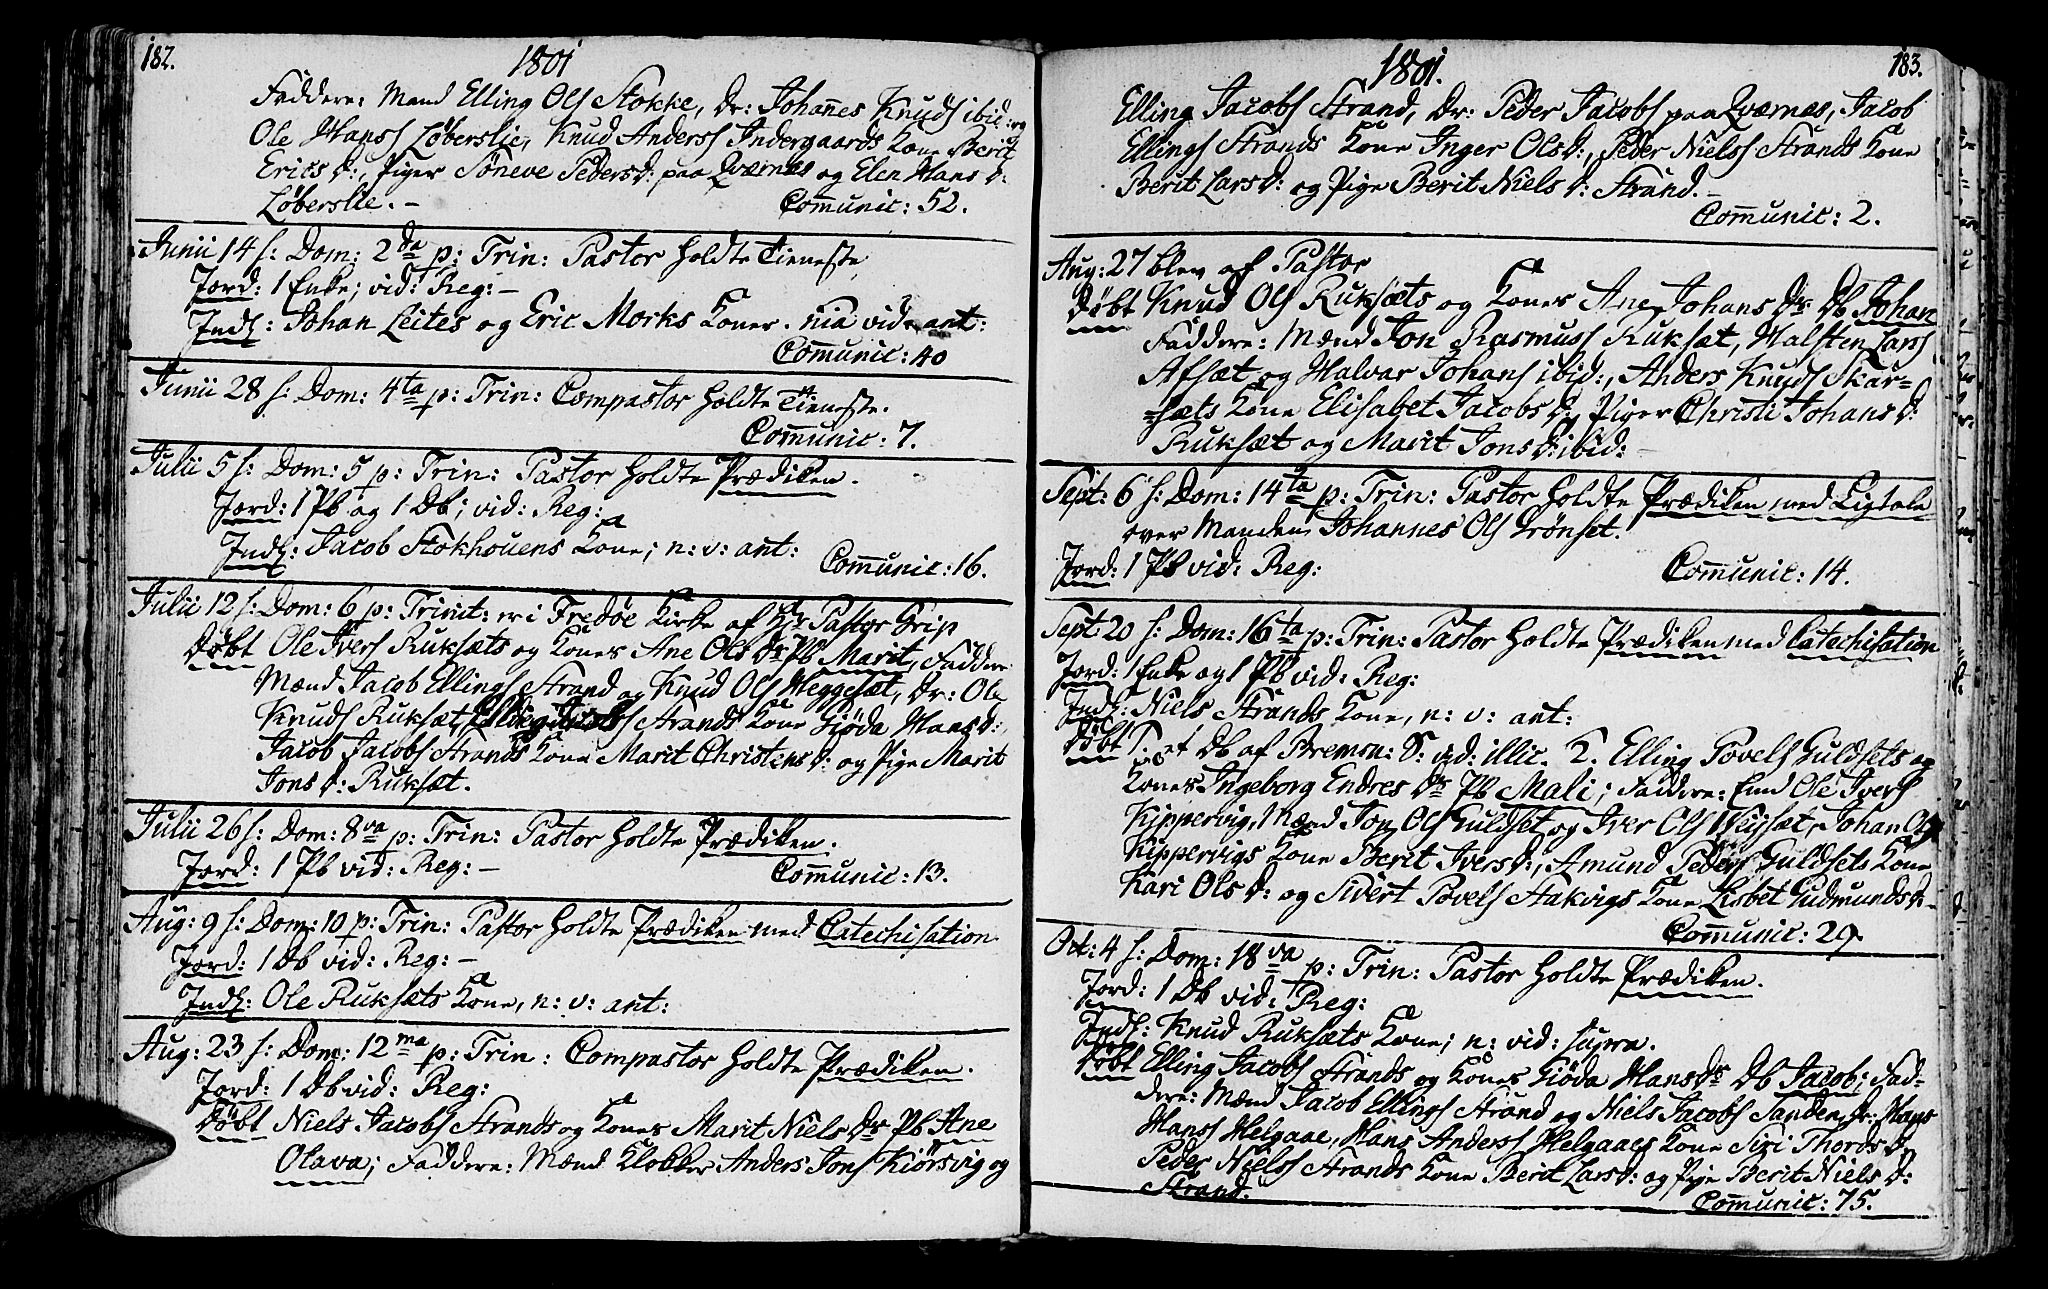 182.
1801
Faddere: Mænd Elling Ols Stokke, Dr: Johannes Knuds ibid: og
Ole Hanss Løberslie, Knud Anderss Indergaards Kone Berit
Erics d:, Piger Søneve Peders d: paa Qværnes og Elen Hans d:
Løberslie. –
Communic: 52.
Junii 14 f: Dom: 2da p: Trin: Pastor holdte Tieneste
Jord: 1 Enke; vid: Reg: –
Indl: Johan Leites og Eric Morks Koner. nia vid: ant:
Communic: 40
Junii 28 f: Dom: 4ta p: Trin: Compastor holdte Tieneste.
Communic: 7.
Julii 5 f: Dom: 5 p: Trin: Pastor holdte Prædiken.
Jord: 1 Pb og 1 Db; vid: Reg:
Indl: Jacob Stokhouens Kone; n: v: ant:
Communic: 16.
Julii 12 f: Dom: 6 p: Trinit: er i Fredøe Kirke af Hr Pastor Grip
Døbt Ole Ivers Ruksæts og Kones Ane Ols Dr Pb Marit, Faddere
Mænd Jacob Ellings Strand og Knud Ols Heggesæt, Dr: Ole
Knuds Ruksæt, Elling Jacobs Strands Kone Giøda Hans d:,
Jacob Jacobs Strands Kone Marit Christens d: og Pige Marit
Jons d: Ruksæt.
Julii 26 f: Dom: 8va p: Trin: Pastor holdte Prædiken.
Jord: 1 Pb vid: Reg: –
Communic: 13.
Aug: 9 f: Dom: 10 p: Trin: Pastor holdte Prædiken med Catechisation
Jord: 1 Db vid: Reg: –
Indl: Ole Ruksæts Kone, n: v: ant:
Aug: 23 f: Dom: 12ma p: Trin: Compastor holdte Prædiken.
Jord: 1 Db vid: Reg:
Døbt Niels Jacobs Strands og Kones Marit Niels Dr Pb Ane
Olava; Faddere: Mænd Klokker Anders Jons Kiørsvig og
183.
1801.
Elling Jacobs Strand, Dr: Peder Jacobs paa Qværnes, Jacob
Ellings Strands Kone Inger Ols d:, Peder Nielss Strands Kone
Berit Lars d: og Pige Berit Niels d: Strand. –
Communic: 2.
Aug: 27 blev af Pastor
Døbt Knud Ols Ruksæts og Kones Ane Johans Dr Db Johan
Faddere: Mænd Jon Rasmuss Ruksæt, Halsten Larss
Afsæt og Halvar Johans ibid:, Anders Knuds Skar=
=sæts Kone Elisabet Jacobs d:, Piger Christi Johans d:
Ruksæt og Marit Jons d: ibid: –
Sept: 6 f: Dom: 14ta p: Trin: Pastor holdte Prædiken med Ligtale
over Manden Johannes Ols Grønset.
Jord: 1 Pb vid: Reg:
Communic: 14.
Sept: 20 f: Dom: 16ta p: Trin: Pastor holdte Prædiken med Catechisation
Jord: 1 Enke og 1 Pb vid: Reg:
Indl: Niels Strands Kone, n: v: ant:
Døbt 1. et Db af Bremsn: S: vid: illic. 2. Elling Povels Guldsets og
Kones Ingeborg Endres Dr Pb Mali; Faddere: Ole Ivers
Kippervig, Mænd Jon Ols Guldset og Iver Ols Weisæt, Johan Ols
Kippervigs Kone Berit Ivers d:, Amund Peders Guldsets Kone
Kari Ols d: og Sivert Povels Stakvigs Kone Lisbet Gudmunds d: –
Communic: 29.
Oct: 4 f: Dom: 18va p: Trin: Pastor holdte Prædiken.
Jord: 1 Db vid: Reg:
Indl: Knud Ruksæts Kone; n: vid: supra.
Døbt Elling Jacobs Strands og Kones Giøda Hans Dr Db Jacob; Fad=
dere: Mænd Jacob Ellings Strand og Niels Jacobs Sanden, Dr: Hans
Hanss Helgaae, Hans Anderss Helgaaes Kone Siri Thords d:,
Peder Nielss Strands Kone Berit Lars d: og Pige Berit Niels d:
Strand.
Communic: 75.